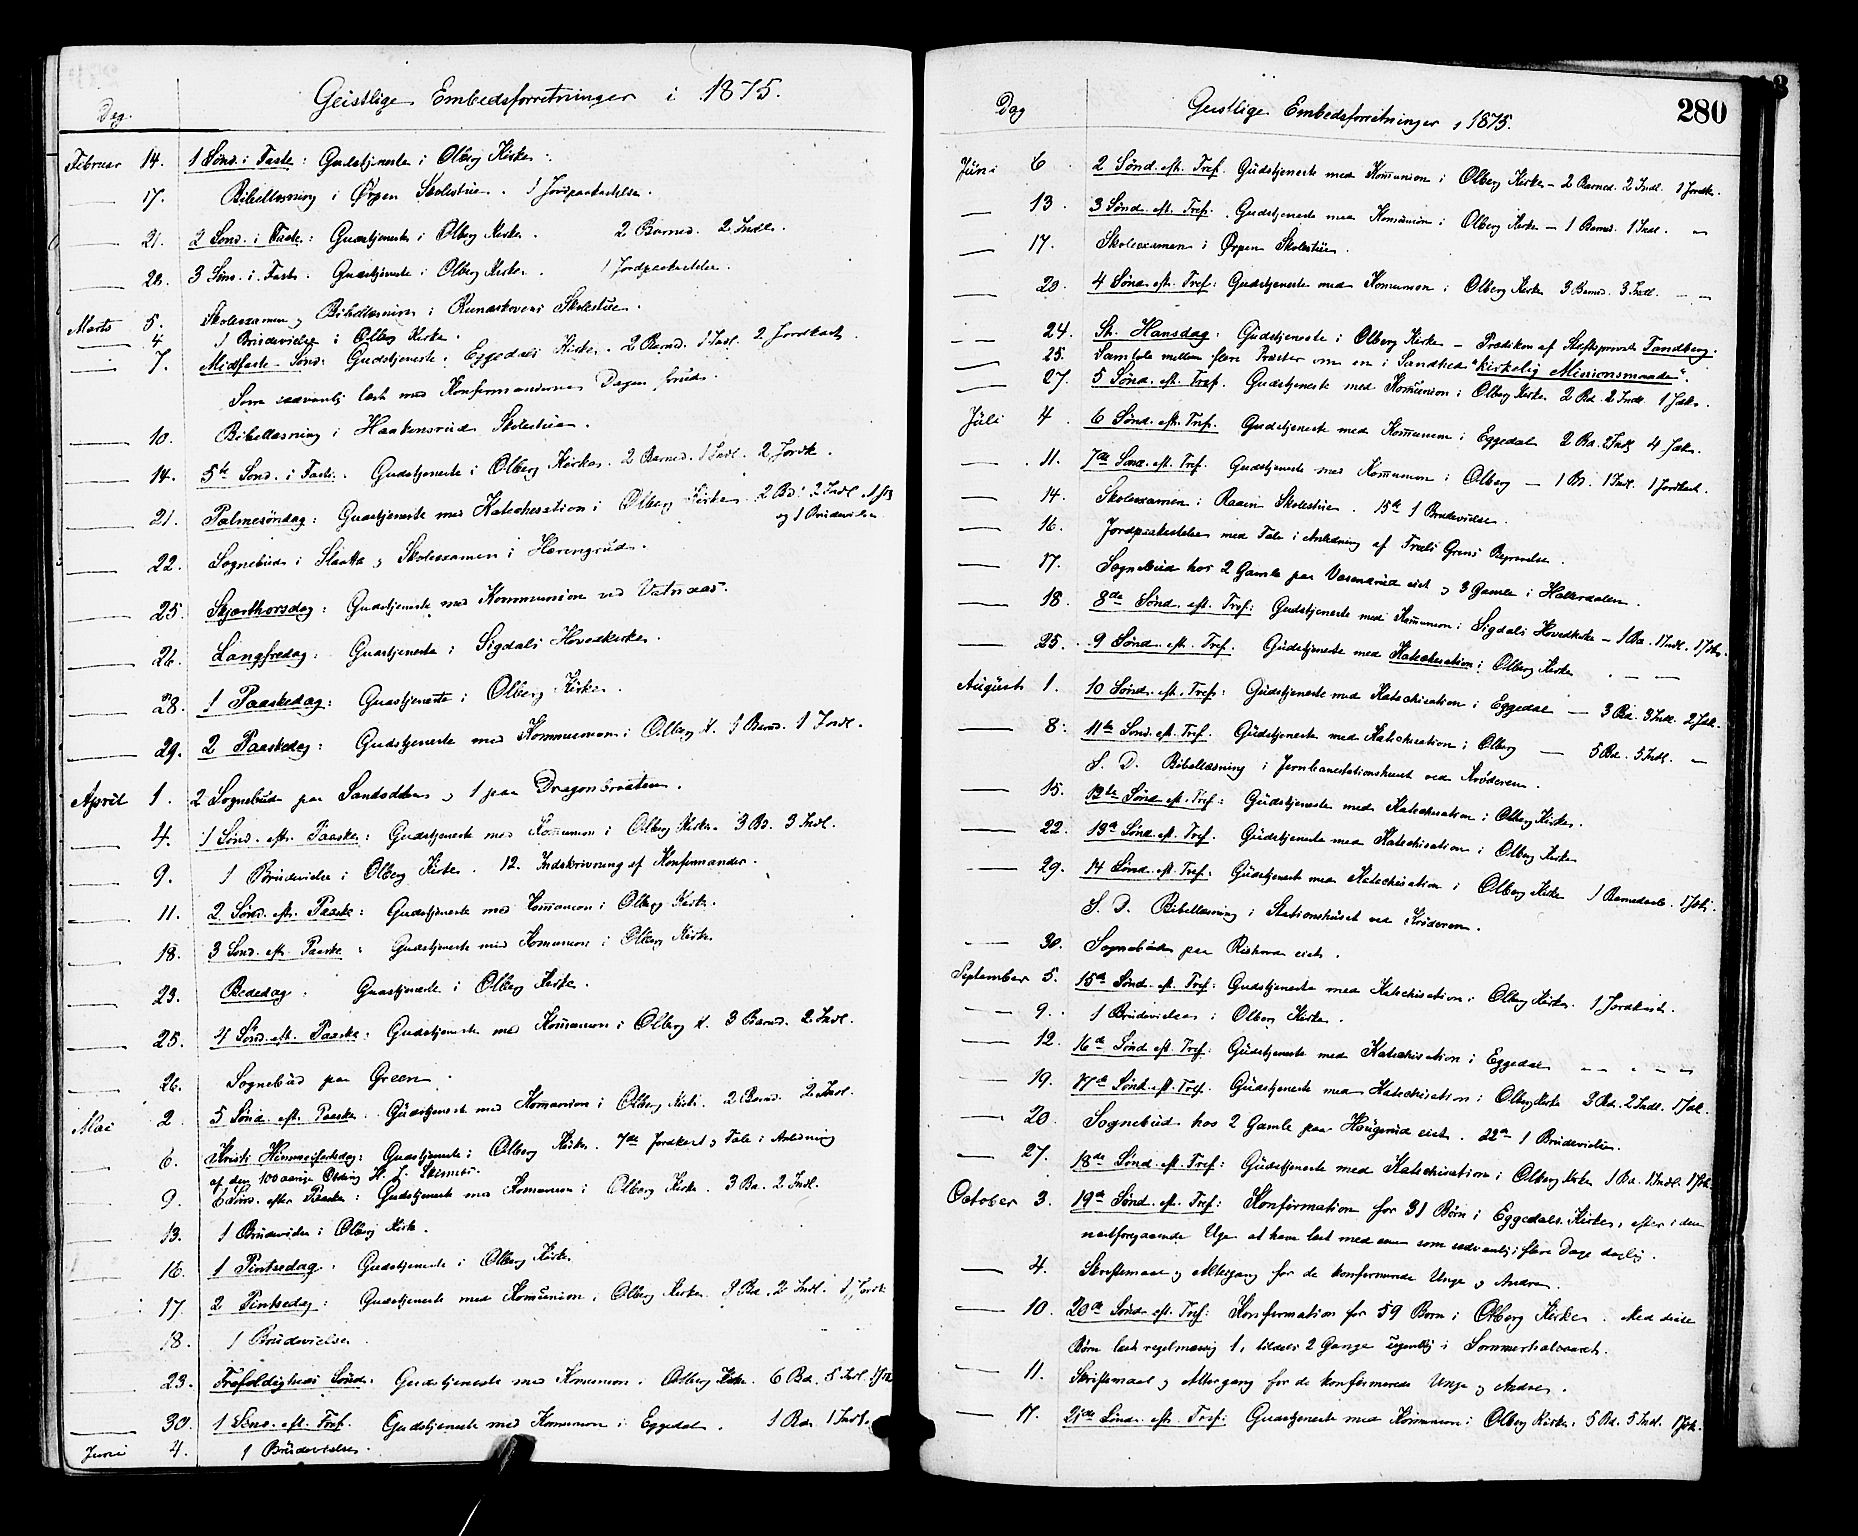 Geistlige Embedsforretninger i 1875.
Dag.
Februar 14. 1 Sønd. i Faste: Gudstjeneste i Olberg Kirke.
— 17. Bibellæsning i Ørpen Skolestue. 1 Jordpaakastelse.
— 21. 2 Sønd. i Faste: Gudstjeneste i Olberg Kirke. 2 Barned. 2 Indl.
— 28. 3 Sønd. i Faste. Gudstjeneste i Olberg Kirke. 1 Jordpaakastelse.
Marts 5. Skoleexamen og Bibellæsning i Skolestue.
— 4 1 Brudevielse i Olberg Kirke.
— 7. Midfaste-Sønd: Gudstjeneste i Eggedals Kirke. 2 Barned. 1 Indl. 2 Jordkast.
Som sædvanlig læst med Konfirmanderne Dagen forud.
— 10. Bibellæsning i Haakensrud Skolestue.
— 14. 5te Sønd. i Faste. Gudstjeneste i Olberg Kirke. 2 Barned. 1 Indl. 2 Jordk.
— 21. Palmesøndag: Gudstjeneste med Katechisation i Olberg Kirke 2 Bd. 2 Indl
og 1 Brudevielse
— 22. Sognebud i Slaatta og Skoleexamen i Horengrud.
— 25. Skjærthorsdag: Gudstjeneste med Kommunion ved Vatnaas.
— 26. Langfredag: Gudstjeneste i Sigdals Hovedkirke.
— 28. 1 Paaskedag: Gudstjeneste i Olberg Kirke.
— 29. 2 Paaskedag: Gudstjeneste med Kommunion i Olberg K. 1 Barned. 1 Indl.
April 1. 2 Sognebud paa Sandodden og 1 paa Dragonbraaten.
— 4. 1 Sønd. eftr. Paaske: Gudstjeneste med Komunion i Olberg Kirke 3 Bd. 3 Indl.
— 9. 1 Brudevielse i Olberg Kirke. 12. Indskrivning af Konfirmander.
— 11. 2 Sønd. eft. Paaske: Gudstjeneste med Komunion i Olberg Kirke.
— 18. 3 Sønd. eft. Paaske: Gudstjeneste med Komunion i Olberg Kirke
— 23. Bededag. Gudstjeneste i Olberg Kirke.
— 25. 4 Sønd. eft. Paaske: Gudstjeneste med Komunion i Olberg K. 3 Barned. 2 Indl.
— 26. Sognebud paa Green.
Mai 2. 5 Sønd. eft. Paaske. Gudstjeneste med Komunion i Olberg Kirke. 2 Barned. 2 Indl.
— 6. Kristi Himmelfartsdag: Gudstjeneste i Olberg Kirke. 7de Jordkast og Tale i Anledning
af den 100aarige Olding H. J.
— 9. 6 Sønd. efter Paaske: Gudstjeneste med Komunion i Olberg Kirke. 3 Ba. 2 Indl.
— 13. 1 Brudevielse i Olberg Kirke.
— 16. 1 Pintsedag: Gudstjeneste i Olberg Kirke
— 17. 2 Pintsedag: Gudstjeneste med Komunion i Olberg Kirke. Bd. 2 Indl. 1 Jordk
18. 1 Brudevielse
23. Trefoldigheds Sønd. Gudstjeneste med Komunion i Olberg Kirke. 6 Bd. 5 Indl.
— 30. 1 Sønd. eft. Tref. Gudstjeneste med Komunion i Eggedal. 1 Bd. 1 Indl.
Juni 4. 1 Brudevielse.
280
Geistlige Embedsforretninger i 1875.
Dag
Juni 6. 2 Sønd. eft. Tref. Gudstjeneste med Komunion i Olberg Kirke – 2 Barned. 2 Indl. 1 Jordk.
— 13. 3 Sønd. eft. Tref. Gudstjeneste med Komunion i Olberg Kirke – 1 Barned. 1 Indl. —
— 17. Skoleexamen i Ørpen Skolestue.
— 20. 4 Sønd. eft. Tref: Gudstjeneste med Komunion i Olberg Kirke 3 Barned. 3 Indl. — —
— 24. St. Hansdag: Gudstjeneste i Olberg Kirke – Prædiken af Stiftsprovst Tandberg.
— 25. Samtale mellem flere Præster om en i Sandhed "kirkelig Missionsmaade".
— 27. 5 Sønd. eft. Tref. Gudstjeneste med Komunion i Olberg Kirke. 2 Bd. 2 Indl. 1 Jdk.
Juli 4. 6 Sønd. eft. Tref. Gudstjeneste med Komunion i Eggedal 2 Ba. 2 Indl. 4 Jdk.
— 11. 7de Sønd. eft. Tref. Gudstjeneste med Komunion i Olberg — 1 Bd. 1 Indl. 1 Jordkast.
— 14. Skoleexamen i Raaen Skolestue. 15de 1 Brudevielse.
— 16. Jordpaakastelse med Tale i Anledning af Truls Grens Begravelse.
— 17. Sognebud hos 2 Gamle paa eiet og 3 Gamle i Hallerdalen.
— 18. 8de Sønd. eft. Tref: Gudstjeneste med Komunion i Sigdals Hovedkirke – 1 Ba. 1 Indl. 1 Jdk.
— 25. 9 Sønd. eft. Tref. Gudstjeneste med Katechisation i Olberg Kirke. — —
August 1. 10 Sønd. eft. Tref: Gudstjeneste med Katechisation i Eggedal — 3 Bd. 3 Indl. 2 Jdk.
— 8. 11te Sønd. eft. Tref. Gudstjeneste med Katechisation i Olberg — 5 Bd. 5 Indl. —
S. D. Bibellæsning i Jernbanestationshuset ved Krøderen.
— 15. 12te Sønd eft. Tref: Gudstjeneste med Katechisation i Olberg Kirke.
— 22. 13de Sønd. eft. Tref. Gudstjeneste med Katechisation i Olberg Kirke
— 29. 14 Sønd. eft. Tref: Gudstjeneste med Katechisation i Olberg Kirke 1 Barnedaab. 1 Jdk.
S. D. Bibellæsning i Stationshuset ved Krøderen.
— 30. Sognebud paa eiet.
September 5. 15de Sønd. eft. Tref: Gudstjeneste med Katechisation i Olberg Kirke. 1 Jordkast.
— 9. 1 Brudevielse i Olberg Kirke.
— 12. 16de Sønd eft. Tref: Gudstjeneste med Katechisation i Eggedal — — — —
— 19. 17de Sønd. eft. Tref. Gudstjeneste med Katechisation i Olberg Kirke 3 Bd. 2 Indl. 1 Jdk.
— 20. Sognebud hos 2 Gamle paa Haugerud eiet. 22de 1 Brudevielse.
— 27. 18de Sønd. eft. Tref: Gudstjeneste med Katechisation i Olberg Kirke 1 Bd. 1 Indl. 1 Jdk.
October 3. 19de Sønd. eft. Tref: Konfirmation for 31 Børn i Eggedals Kirke, efter i den
næstforegaaende Uge at have læst med dem som sædvanlig i flere Dage daglig.
— 4. Skriftemaal og Altergang for de konfirmerede Unge og Andre.
— 10. 20de Sønd. eft. Tref: Konfirmation for 59 Børn i Olberg Kirke. Med disse
Børn læst regelmæssig 1, tildels 2 Gange ugentlig i Sommerhalvaaret.
— 11. Skriftemaal og Altergang for de konfirmerede Unge og Andre.
— 17. 21de Sønd. eft. Tref: Gudstjeneste med Komunion i Olberg Kirke. 5 Bd. 5 Indl. 1 Jdk.